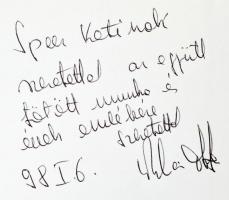 Speer Katinak
szeretettel az együtt
töltött munka és
évek emlékére
szeretettel
98 I. 6.